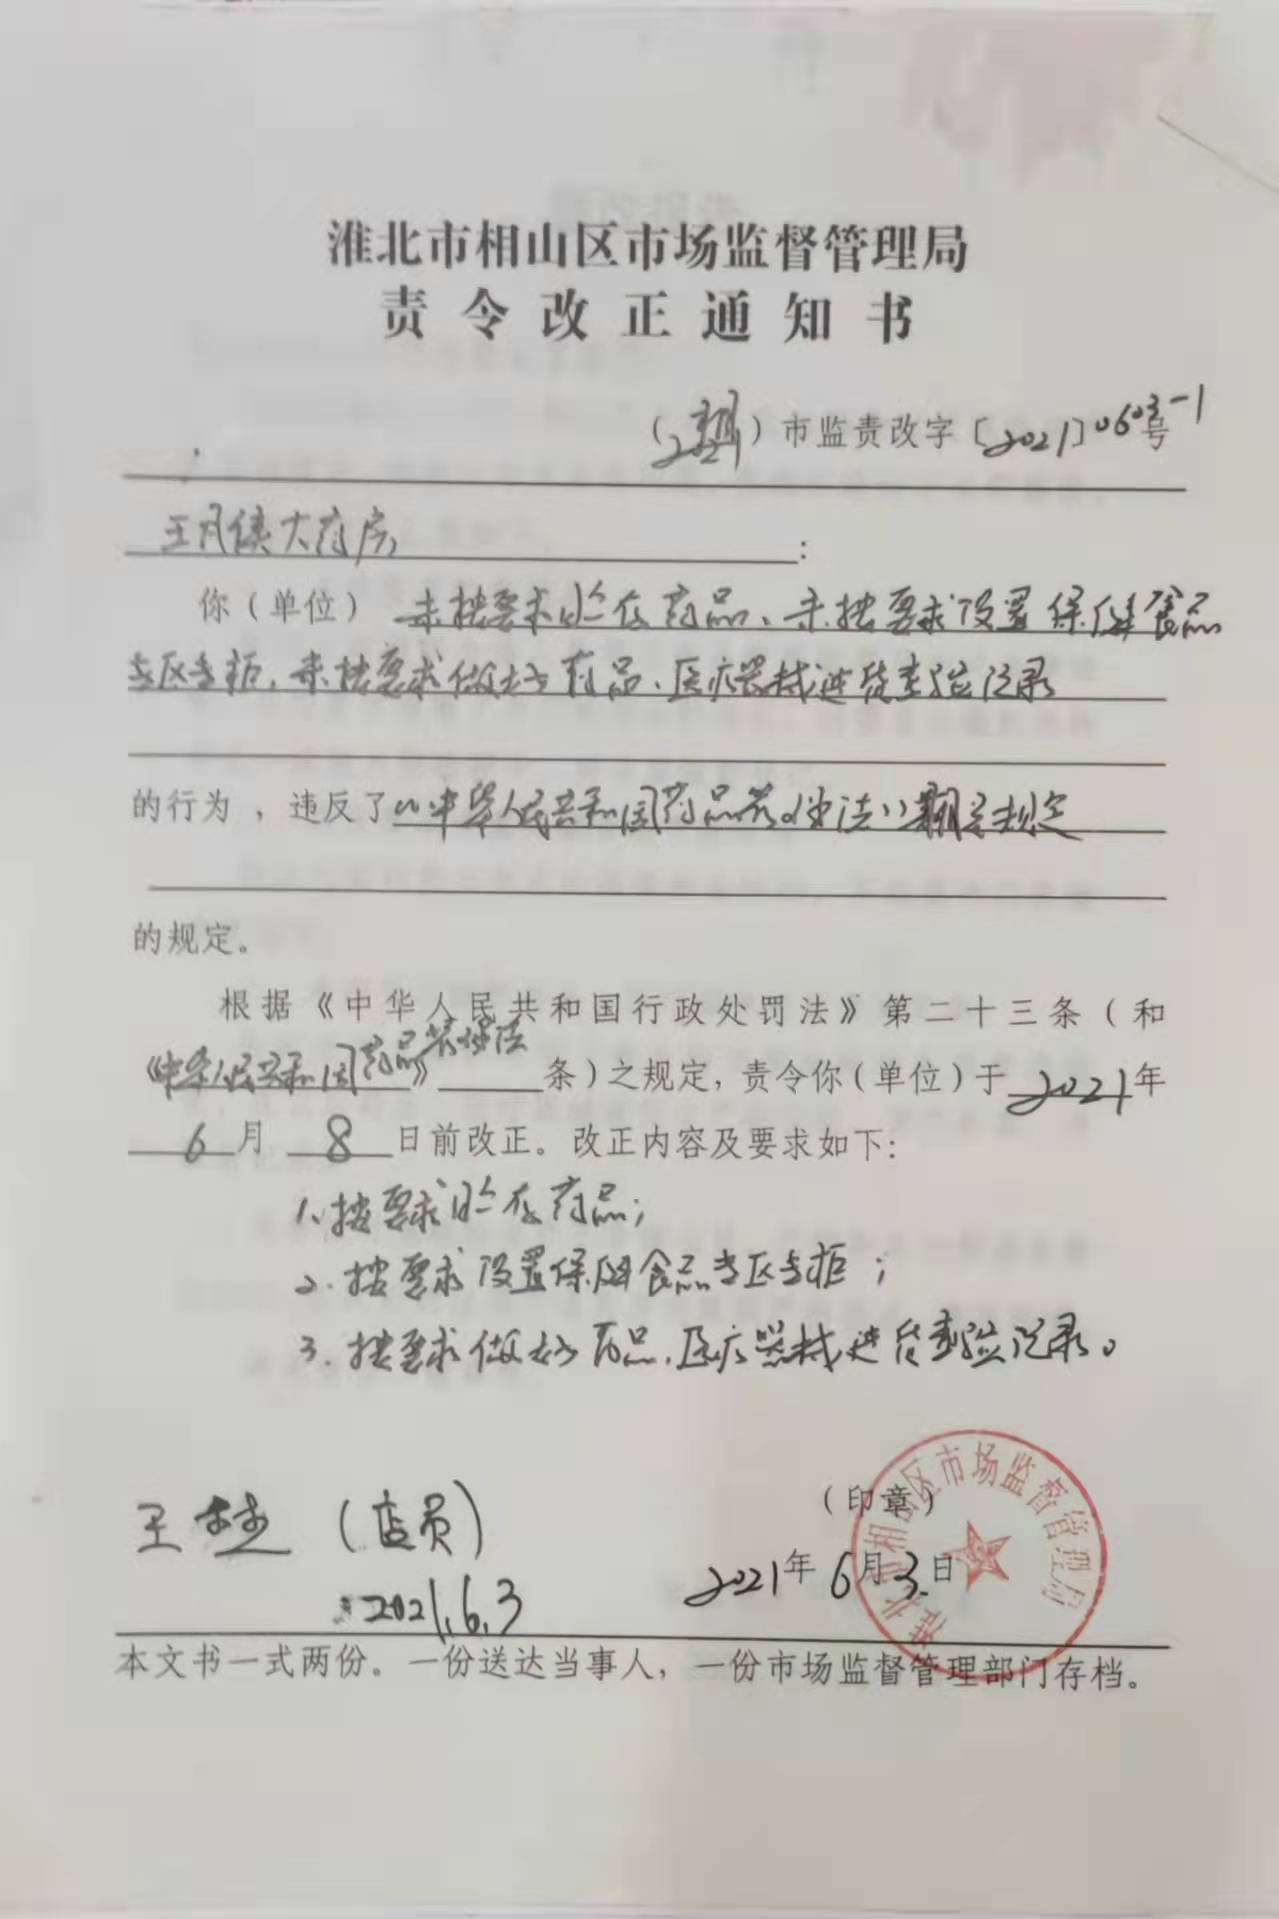 淮北市相山区市场监督管理局
责令改正通知书
( ) 市监责改字〔2021〕0603-1号
王凤侠大药房:
你（单位）未按要求贮存药品、未按要求设置保健食品
专区专柜，未按要求做好药品、医疗器械进货查验记录
的行为，违反了《中华人民共和国药品管理法》相关规定
的规定。
根据《中华人民共和国行政处罚法》第二十三条（和
《中华人民共和国药品管理法》 条）之规定，责令你（单位）于2021年
6月8日前改正。改正内容及要求如下：
1、按要求贮存药品；
2. 按要求设置保健食品专区专柜；
3. 按要求做好药品、医疗器械进货查验记录。
王 （店员）
（印章）
2021年6月3日
2021.6.3
淮北市相山区市场监督管理局
本文书一式两份。一份送达当事人，一份市场监督管理部门存档。